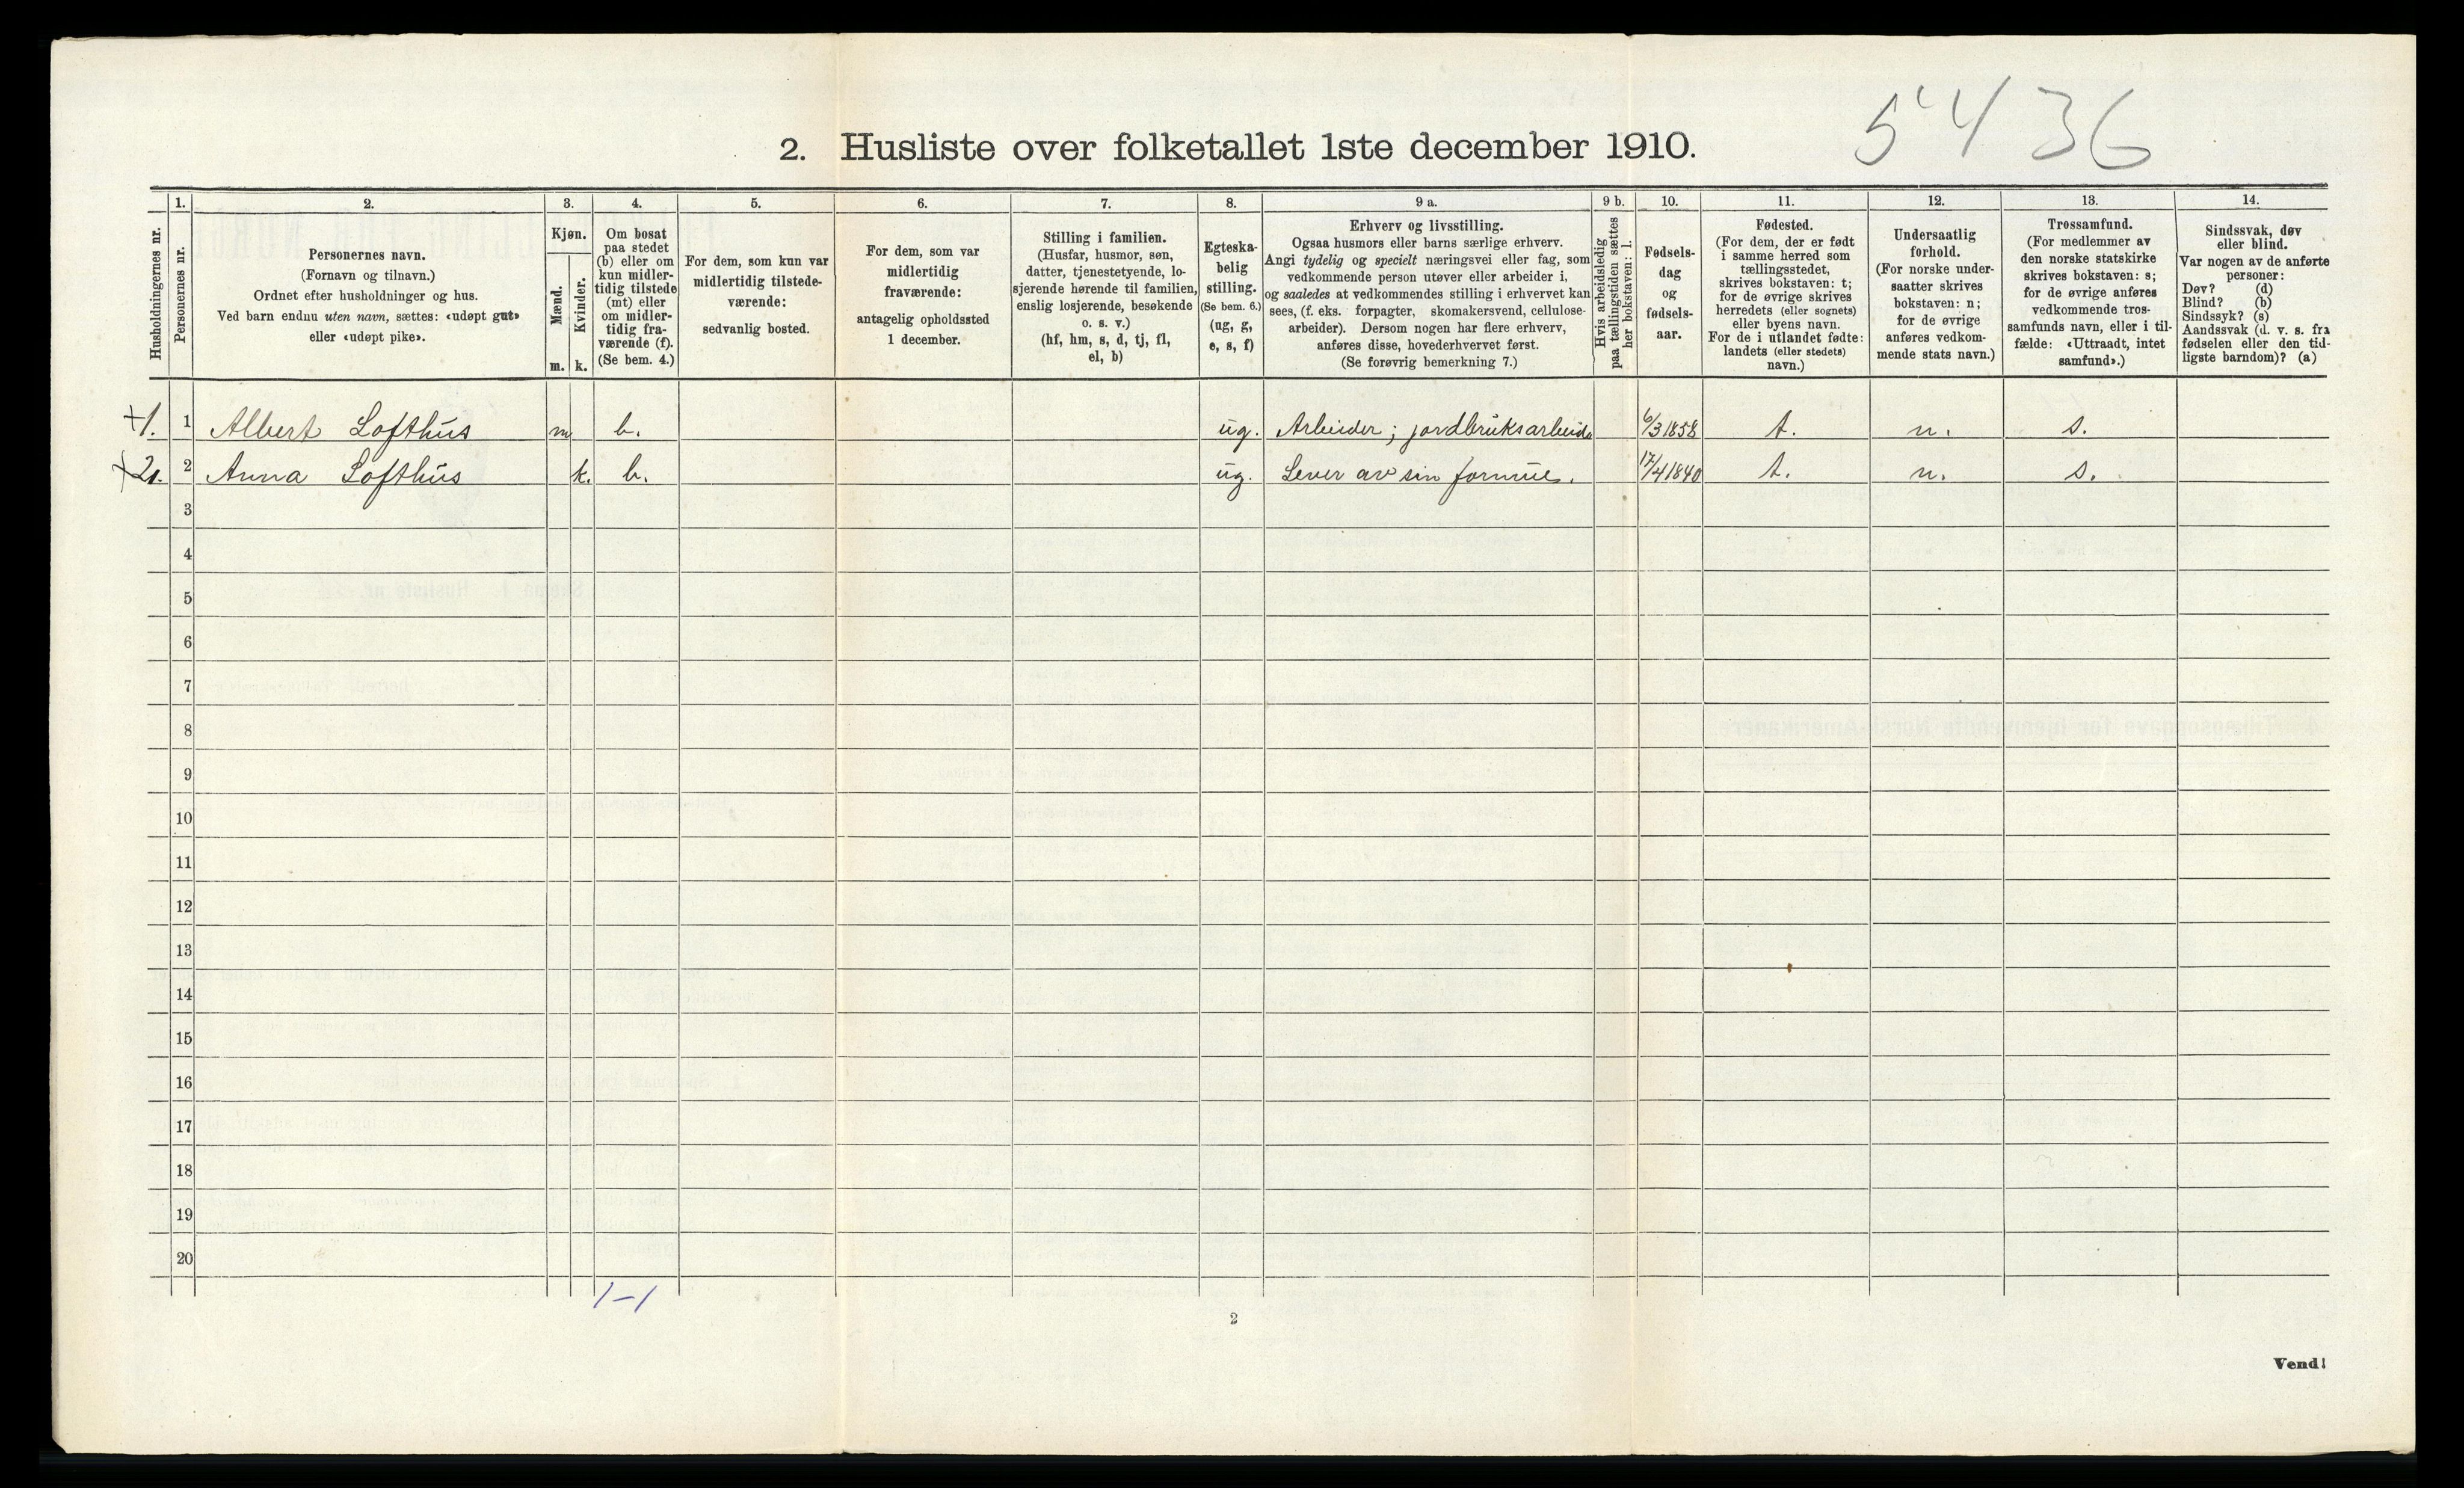 5436
2. Husliste over folketallet 1ste december 1910.
Husholdningernes nr.
1.
Personernes nr.
2.
Personernes navn.
(Fornavn og tilnavn.)
Ordnet efter husholdninger og hus.
Ved barn endnu uten navn, sættes: «udøpt gut»
eller «udøpt pike».
3.
Kjøn.
Mænd.
Kvinder.
m. k.
4.
Om bosat
paa stedet
(b) eller om
kun midler-
tidig tilstede
(mt) eller
om midler-
tidig fra-
værende (f).
(Se bem. 4.)
5.
For dem, som kun var
midlertidig tilstede-
værende:
sedvanlig bosted.
6.
For dem, som var
midlertidig
fraværende:
antagelig opholdssted
1 december.
7.
Stilling i familien.
(Husfar, husmor, søn,
datter, tjenestetyende, lo-
sjerende hørende til familien,
enslig losjerende, besøkende
o. s. v.)
(hf, hm, s, d, tj, fl,
el, b)
8.
Egteska-
belig
stilling.
(Se bem. 6.)
(ug, g,
e, s, f)
9 a.
Erhverv og livsstilling.
Ogsaa husmors eller barns særlige erhverv.
Angi tydelig og specielt næringsvei eller fag, som
vedkommende person utøver eller arbeider i,
og saaledes at vedkommendes stilling i erhvervet kan
sees, (f. eks. forpagter, skomakersvend, cellulose-
arbeider). Dersom nogen har flere erhverv,
anføres disse, hovederhvervet først.
(Se forøvrig bemerkning 7.)
9 b.
Hvis arbeidsledig
paa tællingstiden sættes
her bokstaven: l.
10.
Fødsels-
dag
og
fødsels-
aar.
11.
Fødested.
(For dem, der er født
i samme herred som
tællingsstedet,
skrives bokstaven: t;
for de øvrige skrives
herredets (eller sognets)
eller byens navn.
For de i utlandet fødte:
landets (eller stedets)
navn.)
12.
Undersaatlig
forhold.
(For norske under-
saatter skrives
bokstaven: n;
for de øvrige
anføres vedkom-
mende stats navn.)
13.
Trossamfund.
(For medlemmer av
den norske statskirke
skrives bokstaven: s;
for de øvrige anføres
vedkommende tros-
samfunds navn, eller i til-
fælde: «Uttraadt, intet
samfund».)
14.
Sindssvak, døv
eller blind.
Var nogen av de anførte
personer:
Døv? (d)
Blind? (b)
Sindssyk? (s)
Aandssvak (d. v. s. fra
fødselen eller den tid-
ligste barndom)? (a)
+1. 1 Albert Lofthus m b. ug. Arbeider; jordbruksarbeide 6/3 1858 t. n. s.
+2. 2 Anna Lofthus k. b. ug. Lever av sin formue. 17/4 1840 t. n. s.
3
4
5
6
7
8
9
10
11
12
13
14
15
16
17
18
19
20
1-1
2
Vend!